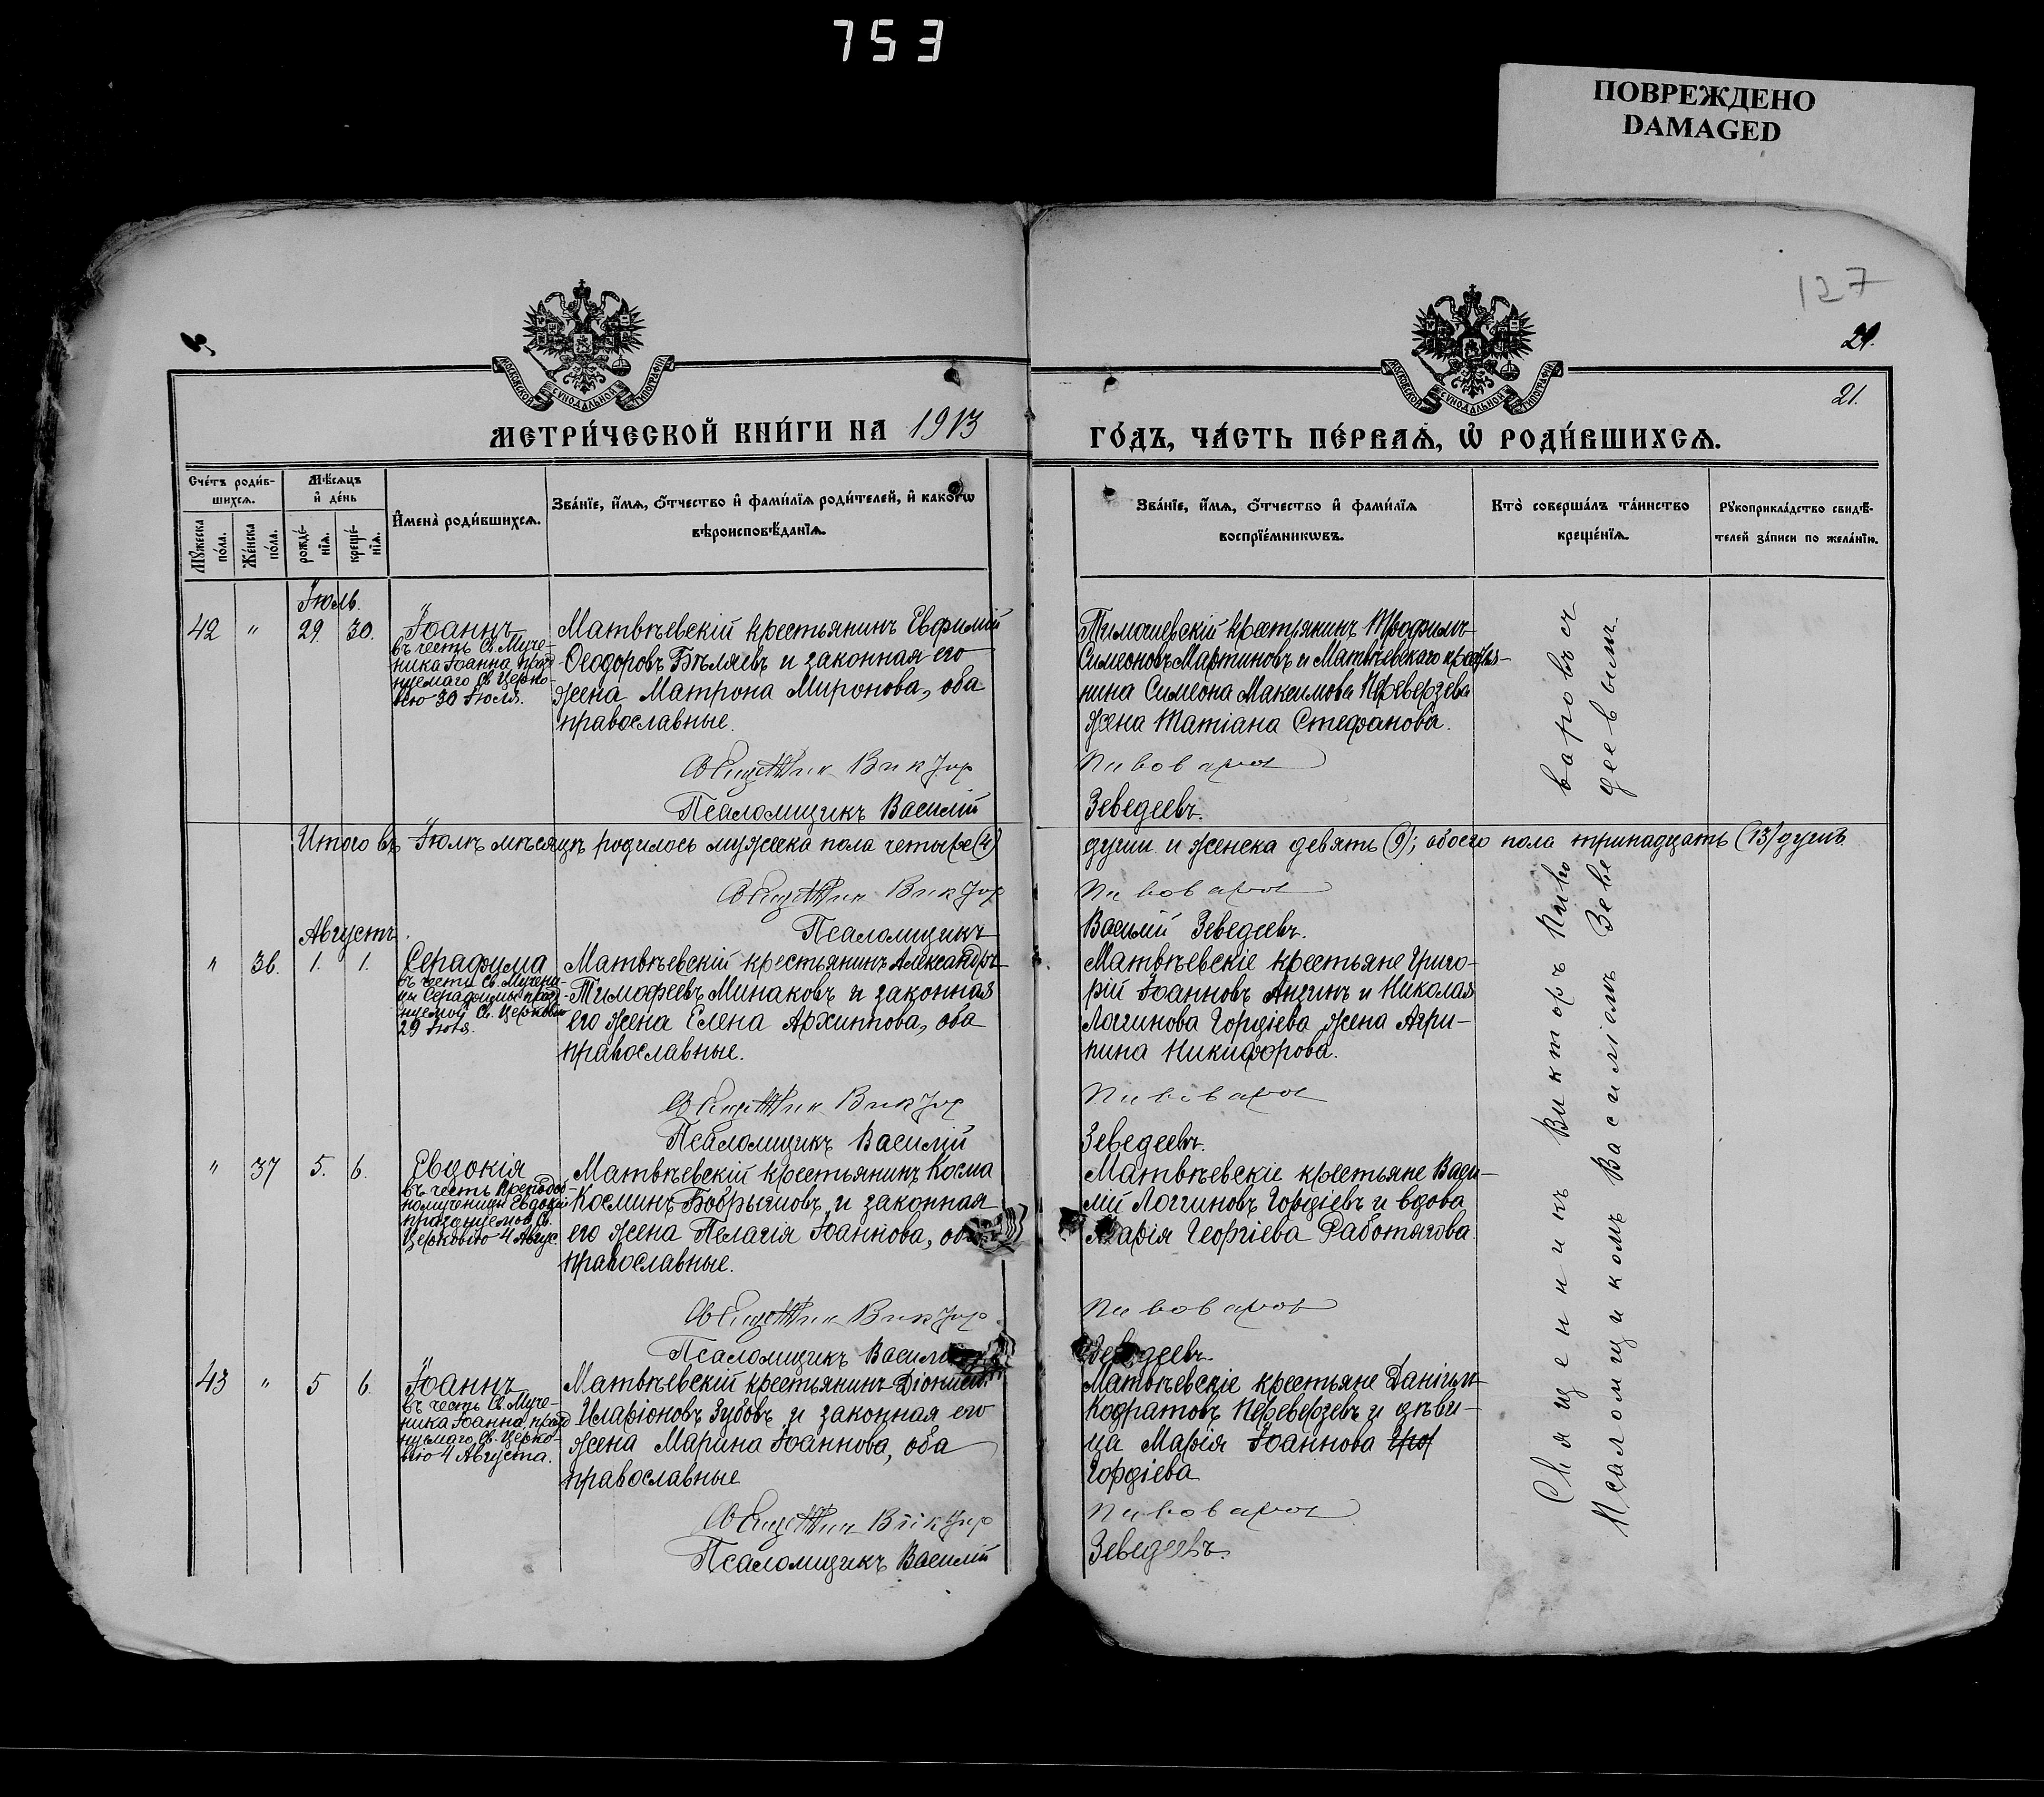 753
ПОВРЕЖДЕНО
DAMAGED
127
21.
21.
МОСКОВСКОЙ СУНОДАЛЬНОЙ ТИПОГРАФІИ
МОСКОВСКОЙ СУНОДАЛЬНОЙ ТИПОГРАФІИ
МЕТРИ́ЧЕСКОЙ КНИ́ГИ НА 1913
ГО́ДЪ, ЧА́СТЬ ПЕ́РВАѦ, Ѽ РОДИ́ВШИХСѦ.
Сче́тъ роди́в-
шихсѧ.
Мꙋ́жеска по́ла.
Же́нска по́ла.
Мѣ́сѧцъ
и҆ де́нь
рожде́-
нїѧ.
креще́-
нїѧ.
И҆мена̀ роди́вшихсѧ.
Зва́нїе, и҆́мѧ, ѻ҆́тчество и҆ фами́лїѧ роди́телей, и҆ како́гѡ
вѣроисповѣ́данїѧ.
Зва́нїе, и҆́мѧ, ѻ҆́тчество и҆ фами́лїѧ
воспрїе́мникѡвъ.
Кто̀ соверша́лъ та́инство
креще́нїѧ.
Рꙋкоприкла́дство свидѣ́-
телей за́писи по жела́нїю.
Іюль.
42 " 29. 30. Іоаннъ
въ честь Св. Муче-
ника Іоанна, празд
нуемаго Св. Церко-
вію 30 Іюля.
Матвѣевскій крестьянинъ Евфимій
Ѳеодоровъ Бѣляевъ и законная его
жена Матрона Миронова, оба
православные.
Священник Виктор
Псаломщикъ Василій
крестьянинъ Трофимъ
Симеоновъ Мартиновъ и Матвѣевскаго крестья-
нина Симеона Максимова Переверзева
жена Татіана Стефанова.
Пивоваров
Зеведеевъ.
Итого въ Іюлѣ мѣсяцѣ родилось мужеска пола четыре (4)
души и женска девять (9); обоего пола тринадцать (13) душъ
Священник Виктор
Псаломщикъ
Пивоваров
Василій Зеведеевъ.
Августъ.
" 36. 1. 1. Серафима
въ честь Св. Мучени-
цы Серафимы, празд-
нуемой Св. Церковію
29 Іюля.
Матвѣевскій крестьянинъ Александръ
Тимофеевъ Минаковъ и законная
его жена Елена Архиппова, оба
православные.
Священник Виктор
Псаломщикъ Василій
Матвѣевскіе крестьяне Григо-
рій Іоанновъ Анзинъ и Николая
Логгинова Гордіева жена Агри-
пина Никифорова.
Пивоваров
Зеведеевъ.
" 37 5. 6. Евдокія
въ честь Преподоб-
номученицы Евдокіи
празднуемой Св.
Церковію 4 Авгус.
Матвѣевскій крестьянинъ Косма
Косминъ Бобрышовъ и законная
его жена Пелагія Іоаннова, оба
православные.
Священник Виктор
Псаломщикъ Василій
Матвѣевскіе крестьяне Васи-
лій Логгиновъ Гордіевъ и вдова
Марія Георгіева Работягова.
Пивоваров
Зеведеевъ.
43 " 5 6. Іоаннъ
въ честь Св. Муче-
ника Іоанна, празд
нуемаго Св. Церко-
вію 4 Августа.
Матвѣевскій крестьянинъ Діонисій
Иларіоновъ Зубовъ и законная его
жена Марина Іоаннова, оба
православные
Священник Виктор
Псаломщикъ Василій
Матвѣевскіе крестьяне Даніилъ
Кодратовъ Переверзевъ и дѣви-
ца Марія Іоаннова
Гордіева
Пивоваров
Зеведеевъ.
Священникъ Викторъ Пивоваровъ съ
Псаломщикомъ Василіемъ Зеведеевымъ.